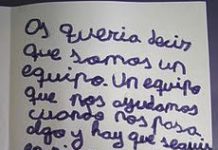 Os queria decir
que somos un
equipo. Un equipo
que nos ayudamos
cuando nos pasa
algo y hay que seguir